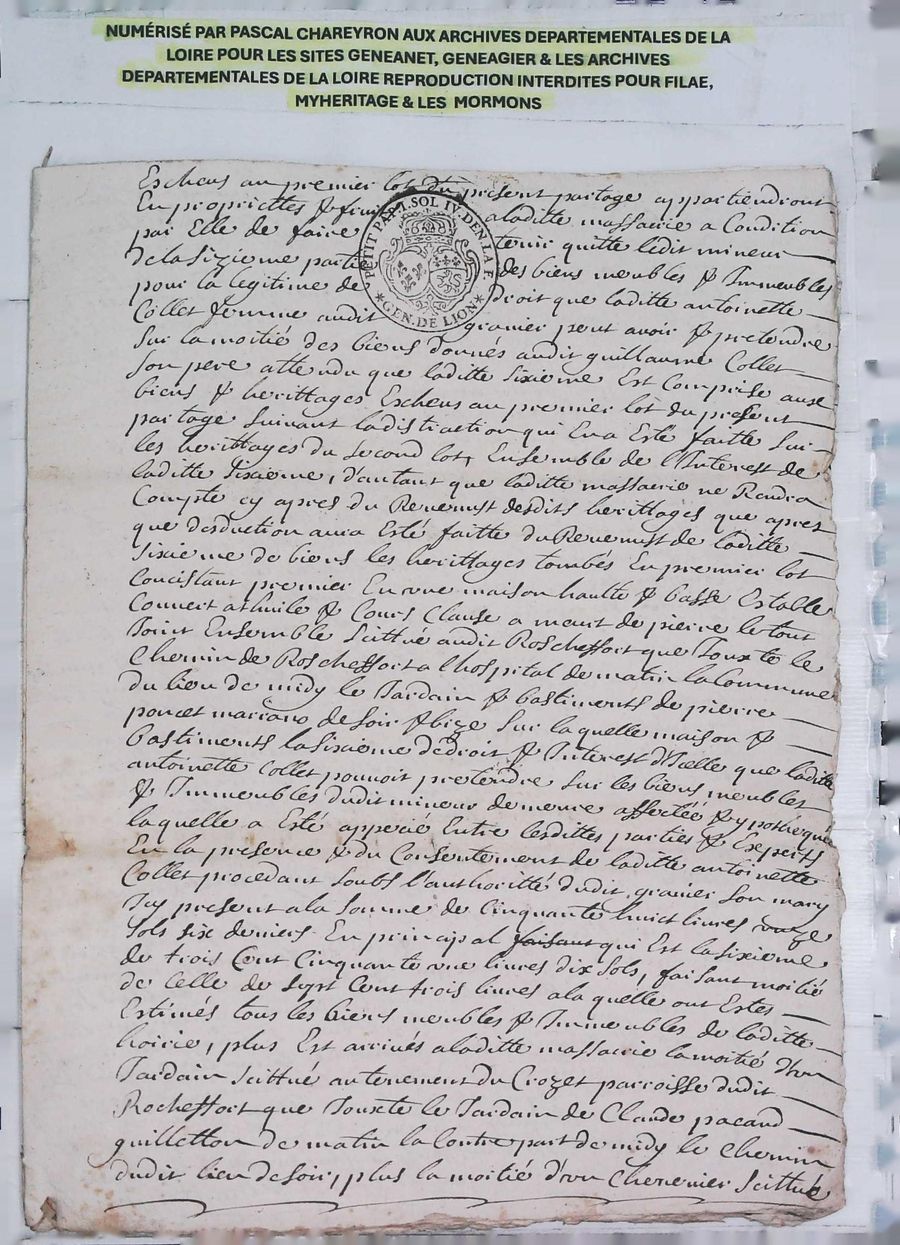 NUMÉRISÉ PAR PASCAL CHAREYRON AUX ARCHIVES DEPARTEMENTALES DE LA
LOIRE POUR LES SITES GENEANET, GENEAGIER & LES ARCHIVES
DEPARTEMENTALES DE LA LOIRE REPRODUCTION INTERDITES POUR FILAE,
MYHERITAGE & LES MORMONS
Escheus au premier lot du present partage appartiendront
En propriettes & fruits aladitte massacrie a Condition
par Elle de faire tenir quitte ledit mineur
delasizieme partie des biens meubles & Immeubles
pour la legitime de Droit que laditte antoinette
Collet femme audit granier peut avoir & pretendre
Sur la moitié des biens donnés audit guillaume Collet
Son pere attendu que laditte Sixieme Est Comprise aux
biens & herittages Escheus au premier lot du present
partage Suivant ladistraction qui Ena Esté faitte Sur
les herittages du Second lot, Ensemble de l'Interest de
laditte Sixieme, d'autant que laditte massacrie ne Rendra
Compte cy apres du Revenust desdits herittages que apres
que desduction aura Esté faitte du Revenust de laditte
Sixieme de biens les herittages tombés En premier lot
Concistant premier En une maison haulte & basse Estable
Couvert athuile & Cours Clause a meurt de pierre le tout
Joint Ensemble Scittué audit Roscheffort que Jouxte le
Chemin de Roscheffort a l'hospital de matin la Commune
du lieu de midy le Jardain & bastiments de pierre
poncet mariano de soir & bize Sur laquelle maison &
bastiments lasixieme dedroit & Interest d'Icelle que laditte
antoinette Collet pouvoit pretendre Sur les biens meubles
& Immeubles dudit mineur demeure affectée & ypothequée
laquelle a Esté apperié Entre lesdittes parties & Experts
En la presence & du Consentement de laditte antoinette
Collet procedant Soubs l'authoritté dudit granier Son mary
Icy present ala Somme de Cinquante huict livres unze
Sols six deniers En principal faisant qui Est lasixieme
de trois Cent Cinquante une livres dix Sols, faisant moitié
de Celle de Sept Cent trois livres ala quelle ont Estes
Estimés tous les biens meubles & Immeubles de laditte
hoirie, plus Est arrivés aladitte massacrie la moitié d'un
Jardain Scittué autenement du Crozet parroisse dudit
Rocheffort que Jouxte le Jardain de Claude pacaud
guilletton de matin la Contre part de midy le Chemin
dudit lieu de soir, plus la moitié d'un Chenevier Scittué
PETIT PAP. 1. SOL IV. DEN. LA F.
GEN. DE LION